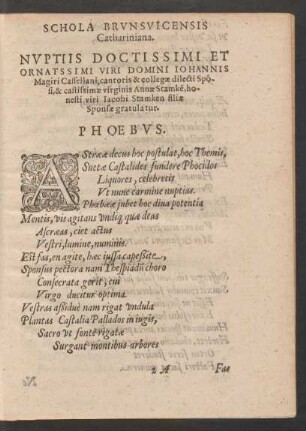 SCHOLA BRVNSVICENSIS
Cathariniana.
NVPTIIS DOCTISSIMI ET
ORNATSSIMI VIRI DOMINI IOHANNIS
Magiri Casseliani, cantoris & collegæ dilecti Spō
si, & castissimæ virginis Annæ Stamkē, ho-
nesti viri Iacobi Stamken filiæ
Sponsæ gratulatur.
PHOEBVS.
AStrææ decus hoc postulat, hoc Themis,
Suetæ Castalides fundere Phocidos
Liquores, celebretis
Vt nunc carmine nuptias.
Phœbææ jubet hoc diva potentia
Mentis, vis agitans vndiq; quæ deas
Ascræas, ciet actus
Vestri, lumine, numinis.
Est fas, en agite, hæc iussa capessite,
Sponsus pectora nam Thespiadū choro
Consecrata gerit, cui
Virgo ducitur optima.
Vestras assiduè nam rigat vndula
Plantas Castalia Pallados in iugis,
Sacro vt fonte rigatæ
Surgant montibus arbores
Fas